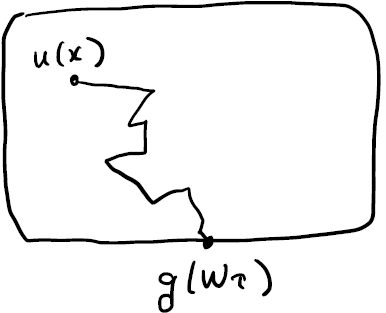 u(x)
g(Wτ)